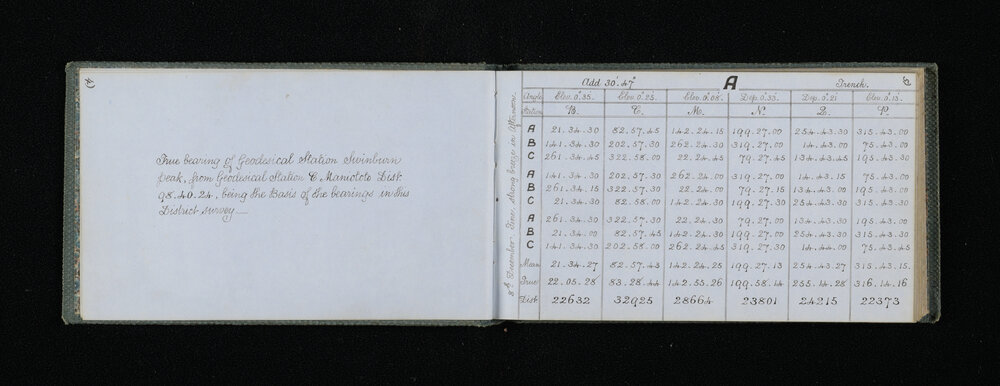 True bearing of Geodesical Station Swinburn
Peak, from Geodesical Station C Maniototo Dist
98.40.24, being the Basis of the bearings in this
District survey
8th December. Fine, strong breeze in Afternoon.
Add 30'.47" A Trench.
Angle Elev. 0°.35. Elev. 0°.25. Elev. 0°.08. Dep. 0°.33. Dep. 0°.21 Elev. 0°.13.
Station B. C. M. N. P.
A 21.34.30 82.57.45 142.24.15 199.27.00 254.43.30 315.43.00
B 141.34.30 202.57.30 262.24.30 319.27.00 14.43.00 75.43.00
C 261.34.45 322.58.00 22.24.45 79.27.45 134.43.45 195.43.30
A 141.34.30 202.57.30 262.24.00 319.27.00 14.43.15 75.43.00
B 261.34.15 322.57.30 22.24.00 79.27.15 134.43.00 195.43.00
C 21.34.30 82.58.00 142.24.30 199.27.30 254.43.30 315.43.30
A 261.34.30 322.57.30 22.24.30 79.27.00 134.43.30 195.43.00
B 21.34.00 82.57.45 142.24.30 199.27.00 254.43.30 315.43.30
C 141.34.30 202.58.00 262.24.45 319.27.30 14.44.00 75.43.45
Mean 21.34.27 82.57.43 142.24.25 199.27.13 254.43.27 315.43.15.
True 22.05.28 83.28.44 142.55.26 199.58.14 255.14.28 316.14.16
Dist 22632 32925 28664 23801 24215 22373